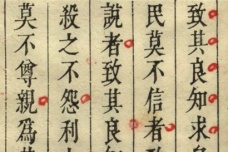 致其良知求身
民莫不信者致
說者致其良知
殺之不怨利之
莫不尊親為其